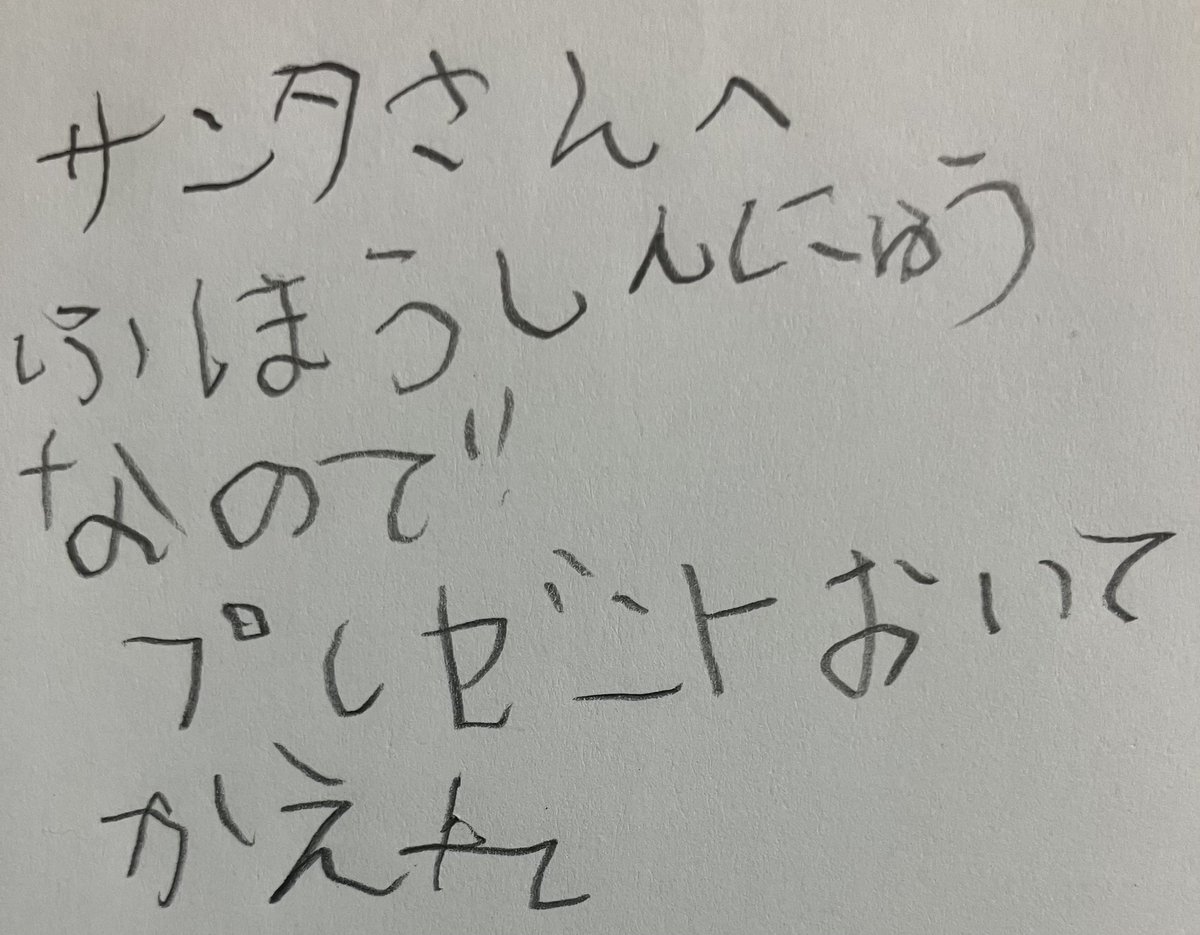 サンタさんへ
ふほうしんにゅう
なので
プレゼントおいて
かえれ